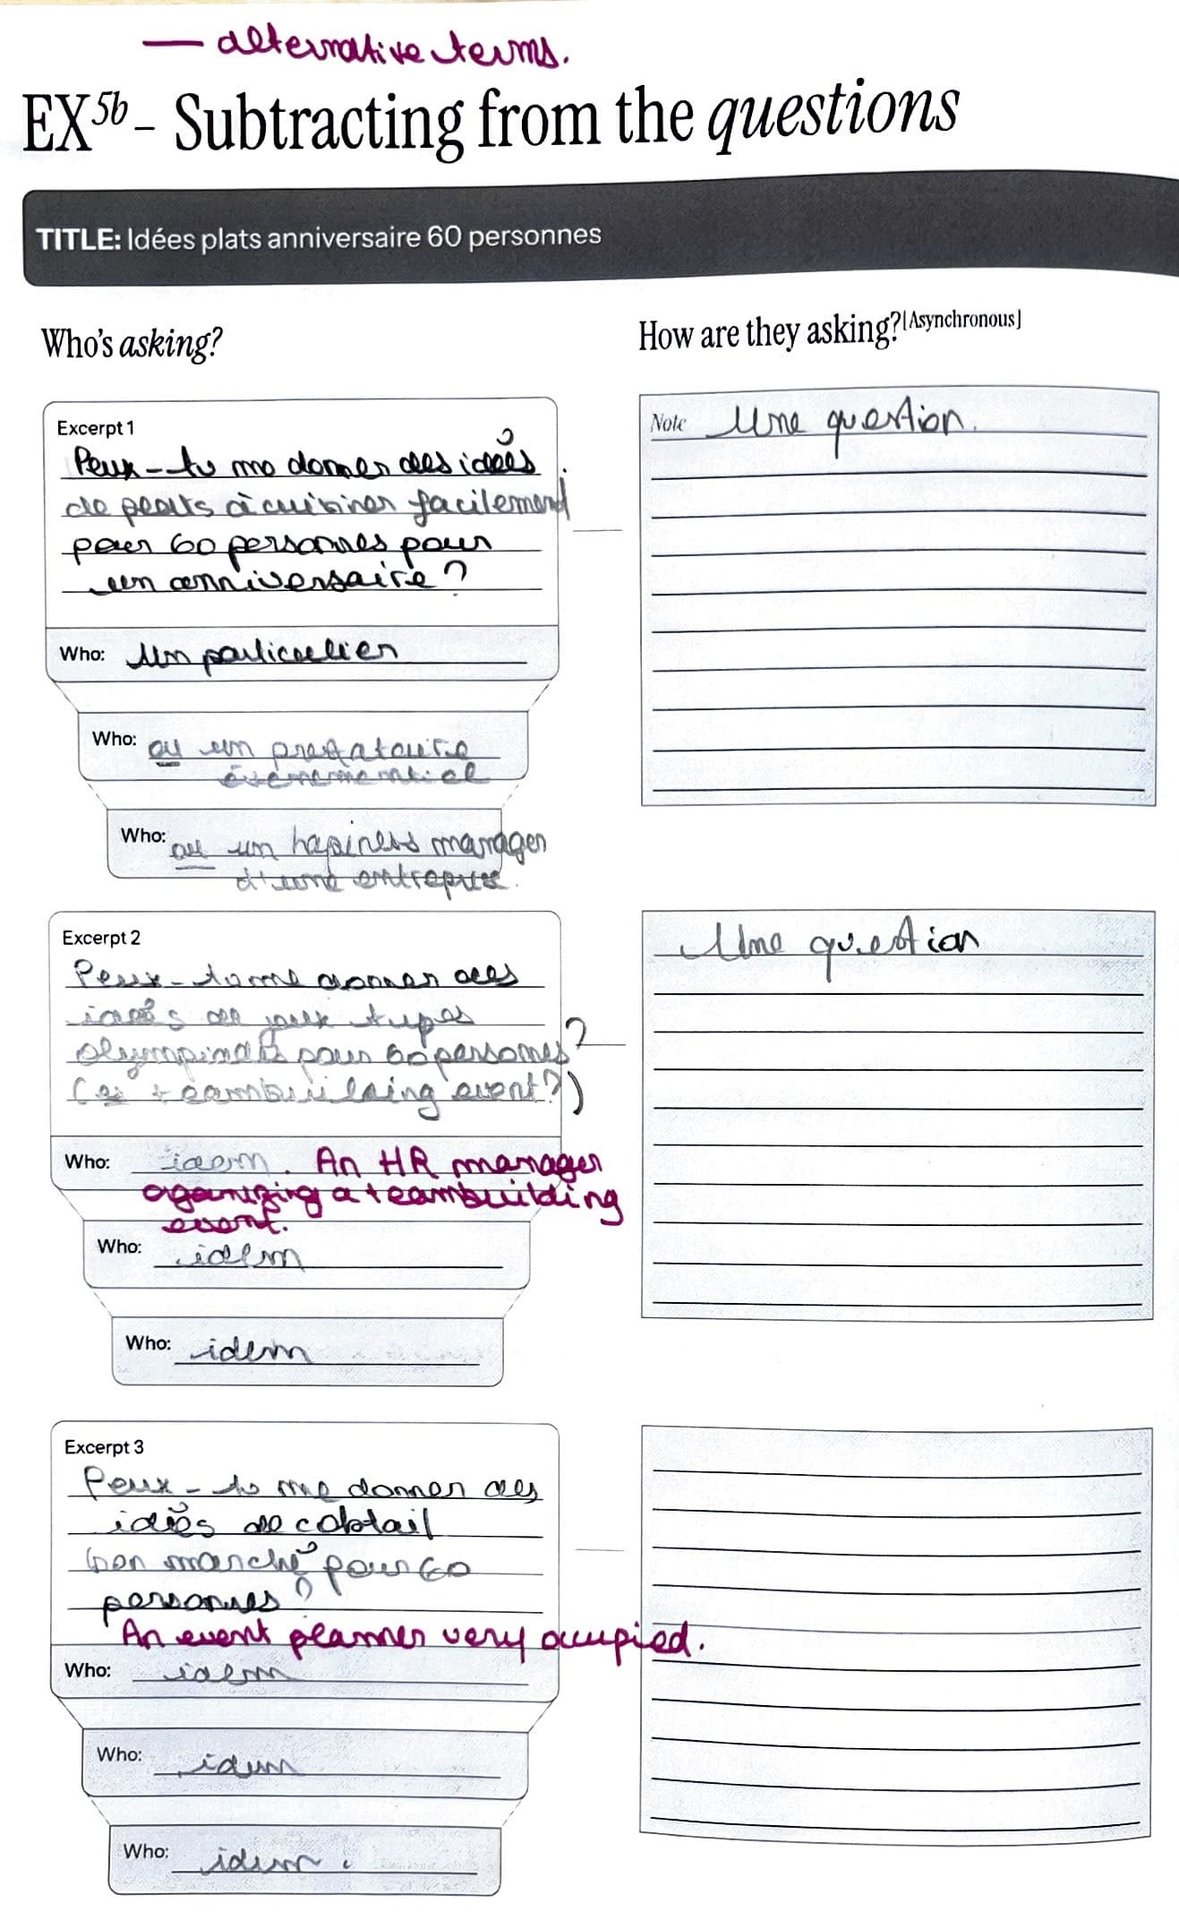 — alternative terms.
EX5b – Subtracting from the questions
TITLE: Idées plats anniversaire 60 personnes
Who's asking?
How are they asking?[Asynchronous]
Excerpt 1
Peux-tu me donner des idées
de plats à cuisiner facilement
pour 60 personnes pour
un anniversaire ?
Who: Un particulier
Who: ou un prestataire
événementiel
Who: ou un hapiness manager
d'une entreprise.
Note Une question.
Excerpt 2
Peux-tu me donner des
idées de jeux types
olympiades pour 60 personnes ?
(as teambuilding event?)
Who: idem. An HR manager
oganizing a teambuilding
event.
Who: idem
Who: idem
Une question
Excerpt 3
Peux-tu me donner des
idées de cocktail
bon marché pour 60
personnes ?
An event planner very occupied.
Who: idem
Who: idem
Who: idem.